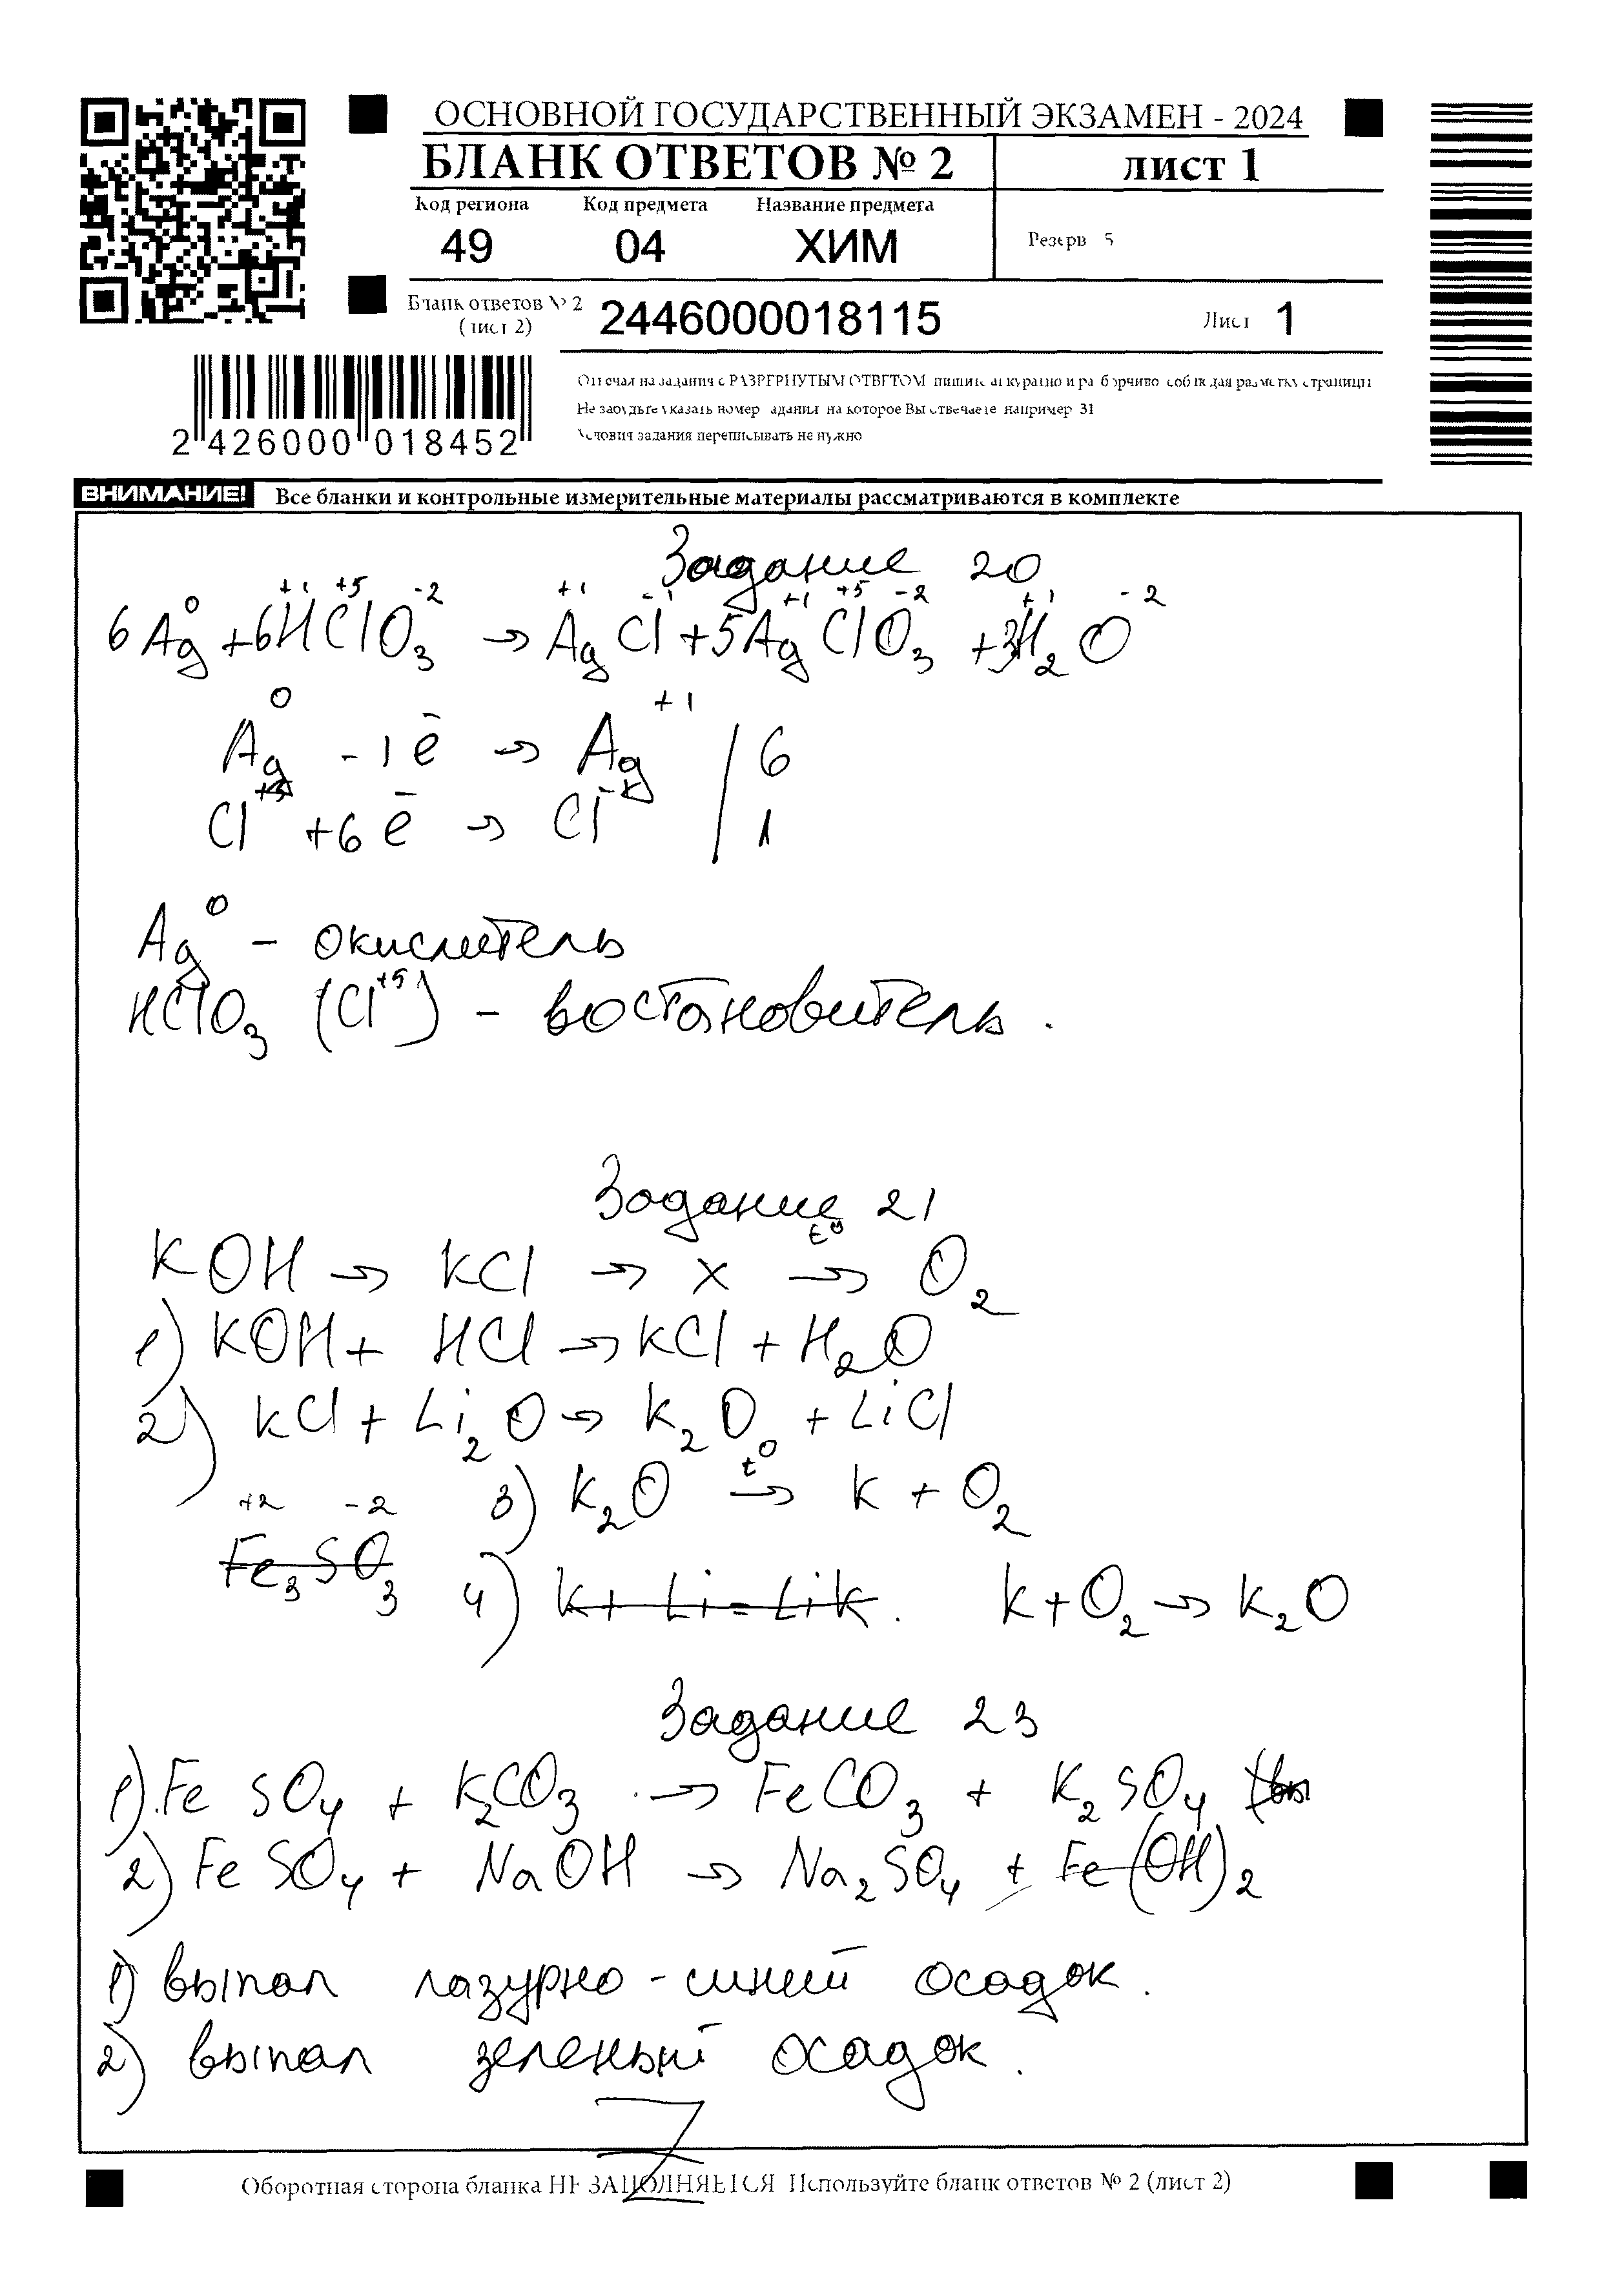 ОСНОВНОЙ ГОСУДАРСТВЕННЫЙ ЭКЗАМЕН - 2024
БЛАНК ОТВЕТОВ № 2 лист 1
Код региона Код предмета Название предмета
49 04 ХИМ Резерв 5
Бланк ответов № 2 (лист 2) 2446000018115 Лист 1
Отвечая на задания с РАЗВЕРНУТЫМ ОТВЕТОМ пишите аккуратно и разборчиво соблюдая разметку страницы
Не забудьте указать номер задания на которое Вы отвечаете например 31
Условия задания переписывать не нужно
2 426000 018452
ВНИМАНИЕ! Все бланки и контрольные измерительные материалы рассматриваются в комплекте
Задание 20
0 +1 +5 -2 +1 -1 +1 +5 -2 +1 -2
6Ag + 6HClO3 → AgCl + 5AgClO3 + 3H2O
Ag⁰ - 1ē → Ag⁺¹ / 6
Cl + 6ē → Cl / 1
Ag⁰ - окислитель
HClO3 (Cl⁺⁵) - востановитель.
Задание 21
KOH → KCl → x →t° O2
1) KOH + HCl → KCl + H2O
2) KCl + Li2O → K2O + LiCl
3) K2O →t° K + O2
+2 -2
Fe3SO3
4) K + Li = LiK. K + O2 → K2O
Задание 23
1). FeSO4 + K2CO3 → FeCO3 + K2SO4
2) FeSO4 + NaOH → Na2SO4 + Fe(OH)2
1) выпал лазурно-синий осадок.
2) выпал зеленый осадок.
Z
Оборотная сторона бланка НЕ ЗАПОЛНЯЕТСЯ Используйте бланк ответов № 2 (лист 2)